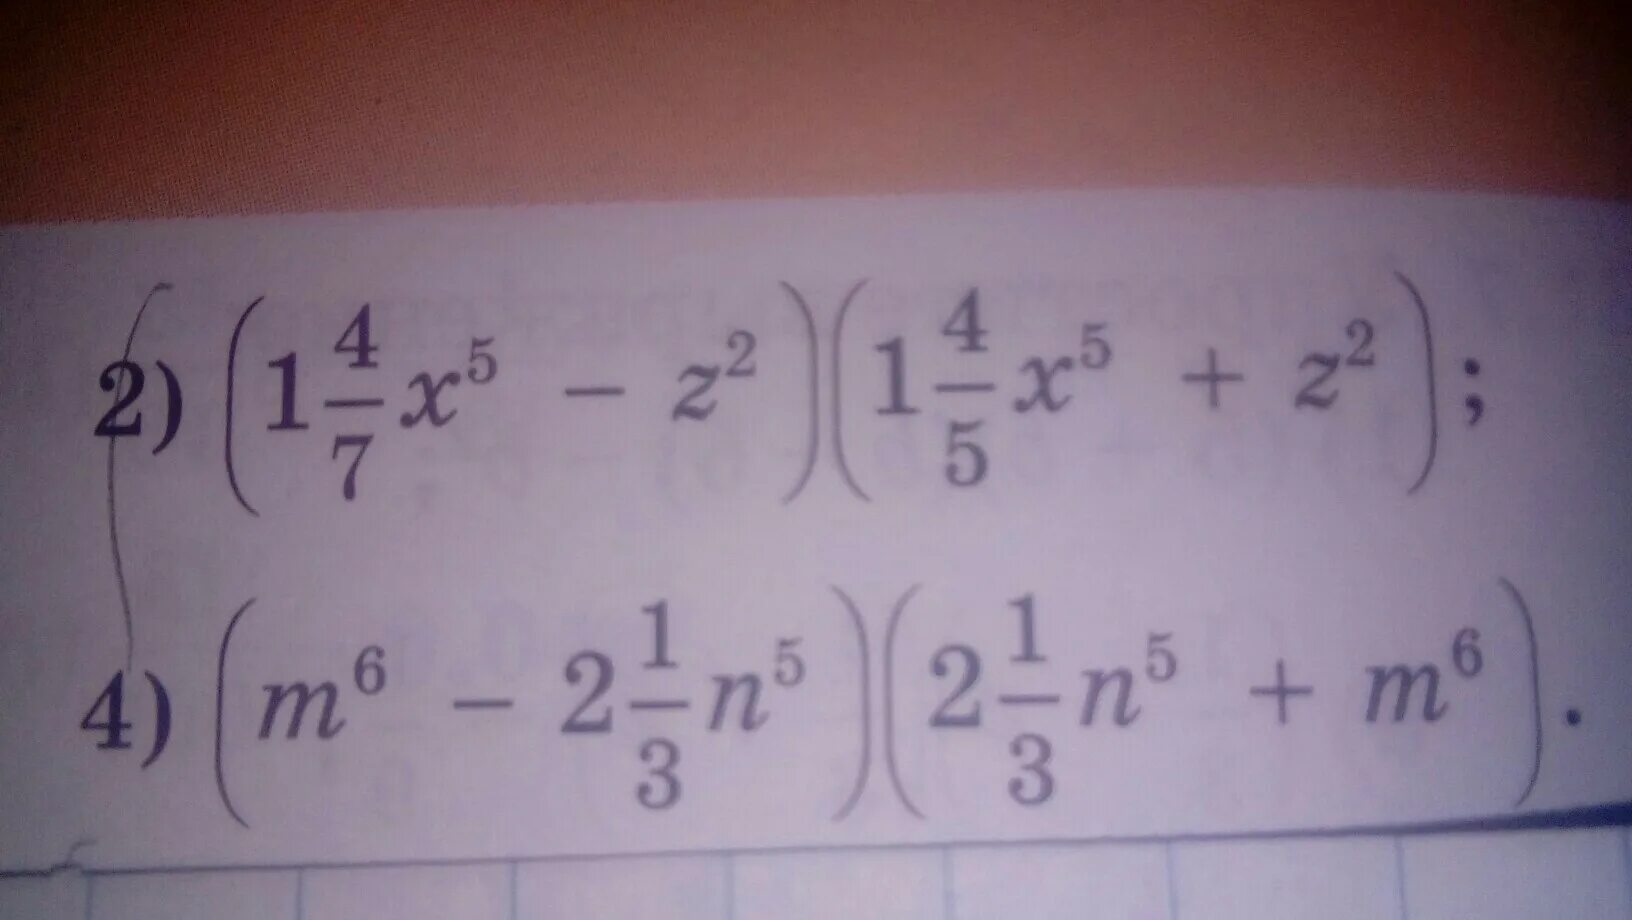 2) (1 4/7 x⁵ − z²)(1 4/5 x⁵ + z²);
4) (m⁶ − 2 1/3 n⁵)(2 1/3 n⁵ + m⁶).